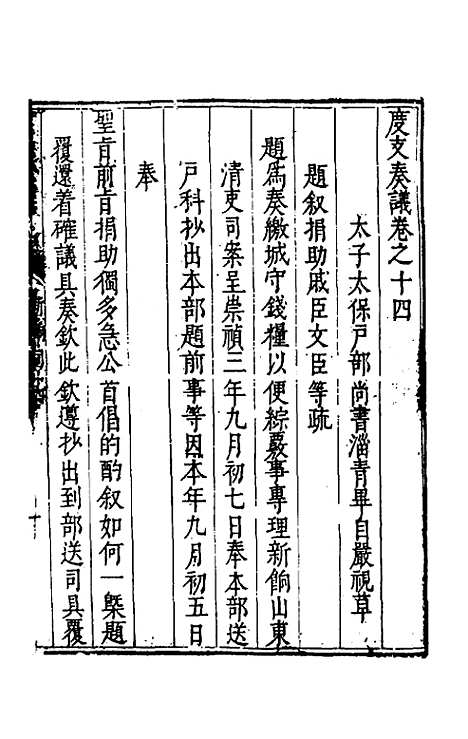 度支奏議卷之十四
太子太保戶部尚書淄青畢自嚴視草
題叙捐助戚臣文臣等疏
題爲奏繳城守錢糧以便綜覈事專理新餉山東
清吏司案呈崇禎三年九月初七日奉本部送
戶科抄出本部題前事等因本年九月初五日
奉
聖旨前旨捐助獨多急公首倡的酌叙如何一槩題
覆還着確議具奏欽此欽遵抄出到部送司具覆